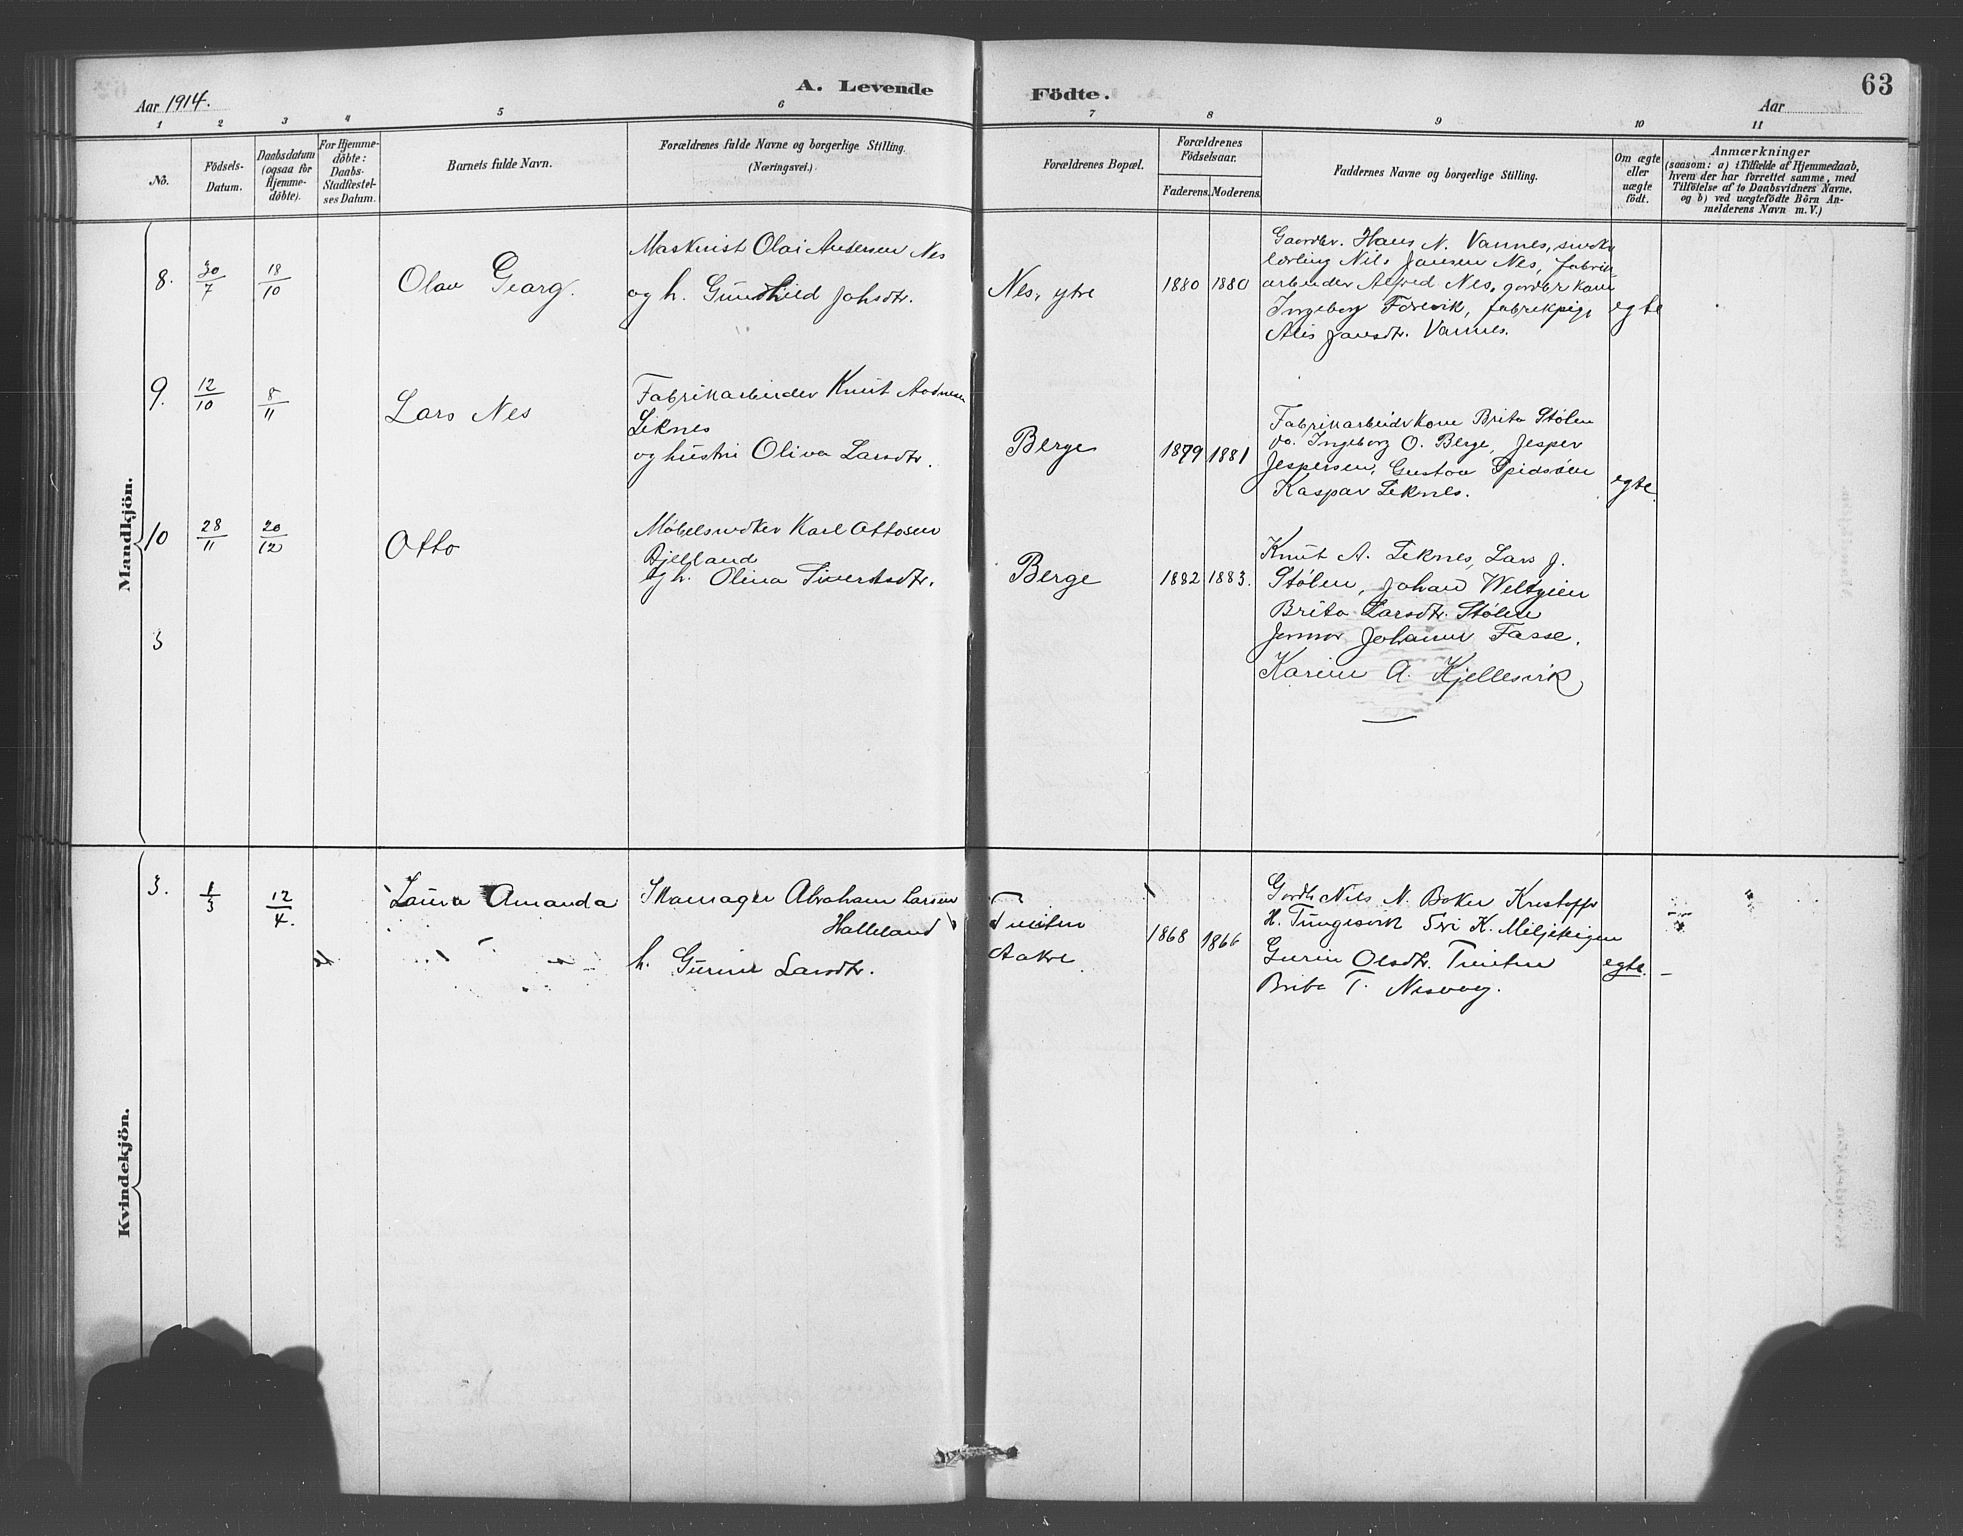 63
Aar 1914.
A. Levende
Födte.
Aar
1
2
3
4
5
6
7
8
9
10
11
No.
Födsels-
Datum.
Daabsdatum
(ogsaa for
Hjemme-
døbte).
For Hjemme-
døbte:
Daabs-
Stadfæstel-
ses Datum.
Barnets fulde Navn.
Forældrenes fulde Navne og borgerlige Stilling.
(Næringsvei.)
Forældrenes Bopæl.
Forældrenes
Födselsaar.
Faderens.
Moderens.
Faddernes Navne og borgerlige Stilling.
Om ægte
eller
uægte
født.
Anmærkninger
(saasom: a) i Tilfælde af Hjemmedaab,
hvem der har forrettet samme, med
Tilföielse af to Daabsvidners Navne.
og b) ved uægtefödte Börn An-
melderens Navn m. V.)
Mandkjön.
8.
30/7
18/10
Olav Georg.
Maskinist Olai Andersen Nes
og h. Gundhild Johsdtr.
Nes, ytre
1880
1880
Gaardbr. Hans N. Vannes,
lærling Nils Jansen Nes, fabrik-
arbeider Alfred Nes, gardbr kone
Ingeborg Forevik, fabrikpige
Alis Jansdtr. Vannes.
egte
9.
12/10
8/11
Lars Nes
Fabrikarbeider Knut Aadnesen
Leknes
og hustru Oliva Larsdtr.
Berge
1879
1881
Fabrikarbeidrkone Brita Stølen
do. Ingeborg O. Berge, Jesper
Jespersen, Gustav Spidsøen
Kaspar Leknes.
egte
10
28/11
20/12
Otto
Møbelsnedker Karl Ottosen
Bjelland
og h. Olina Siverstsdtr.
Berge
1882
1883.
Knut A. Leknes, Lars J.
Stølen, Johan
Brita Larsdtr. Stølen
Johanne Fasse.
Karine A. Kjellesvik
3
Kvindekjön.
3.
1/3
12/4.
Laura Amanda
Skomager Abraham Larsen
Halleland
h. Gurine Larsdtr.
Tveiten
Aakre
1868
1866
Gardbr Nils N. Boken Kristoffer
H. Tungesvik Siri K.
Gurin Olsdtr. Tveiten
Brita T. Nesvog.
egte.